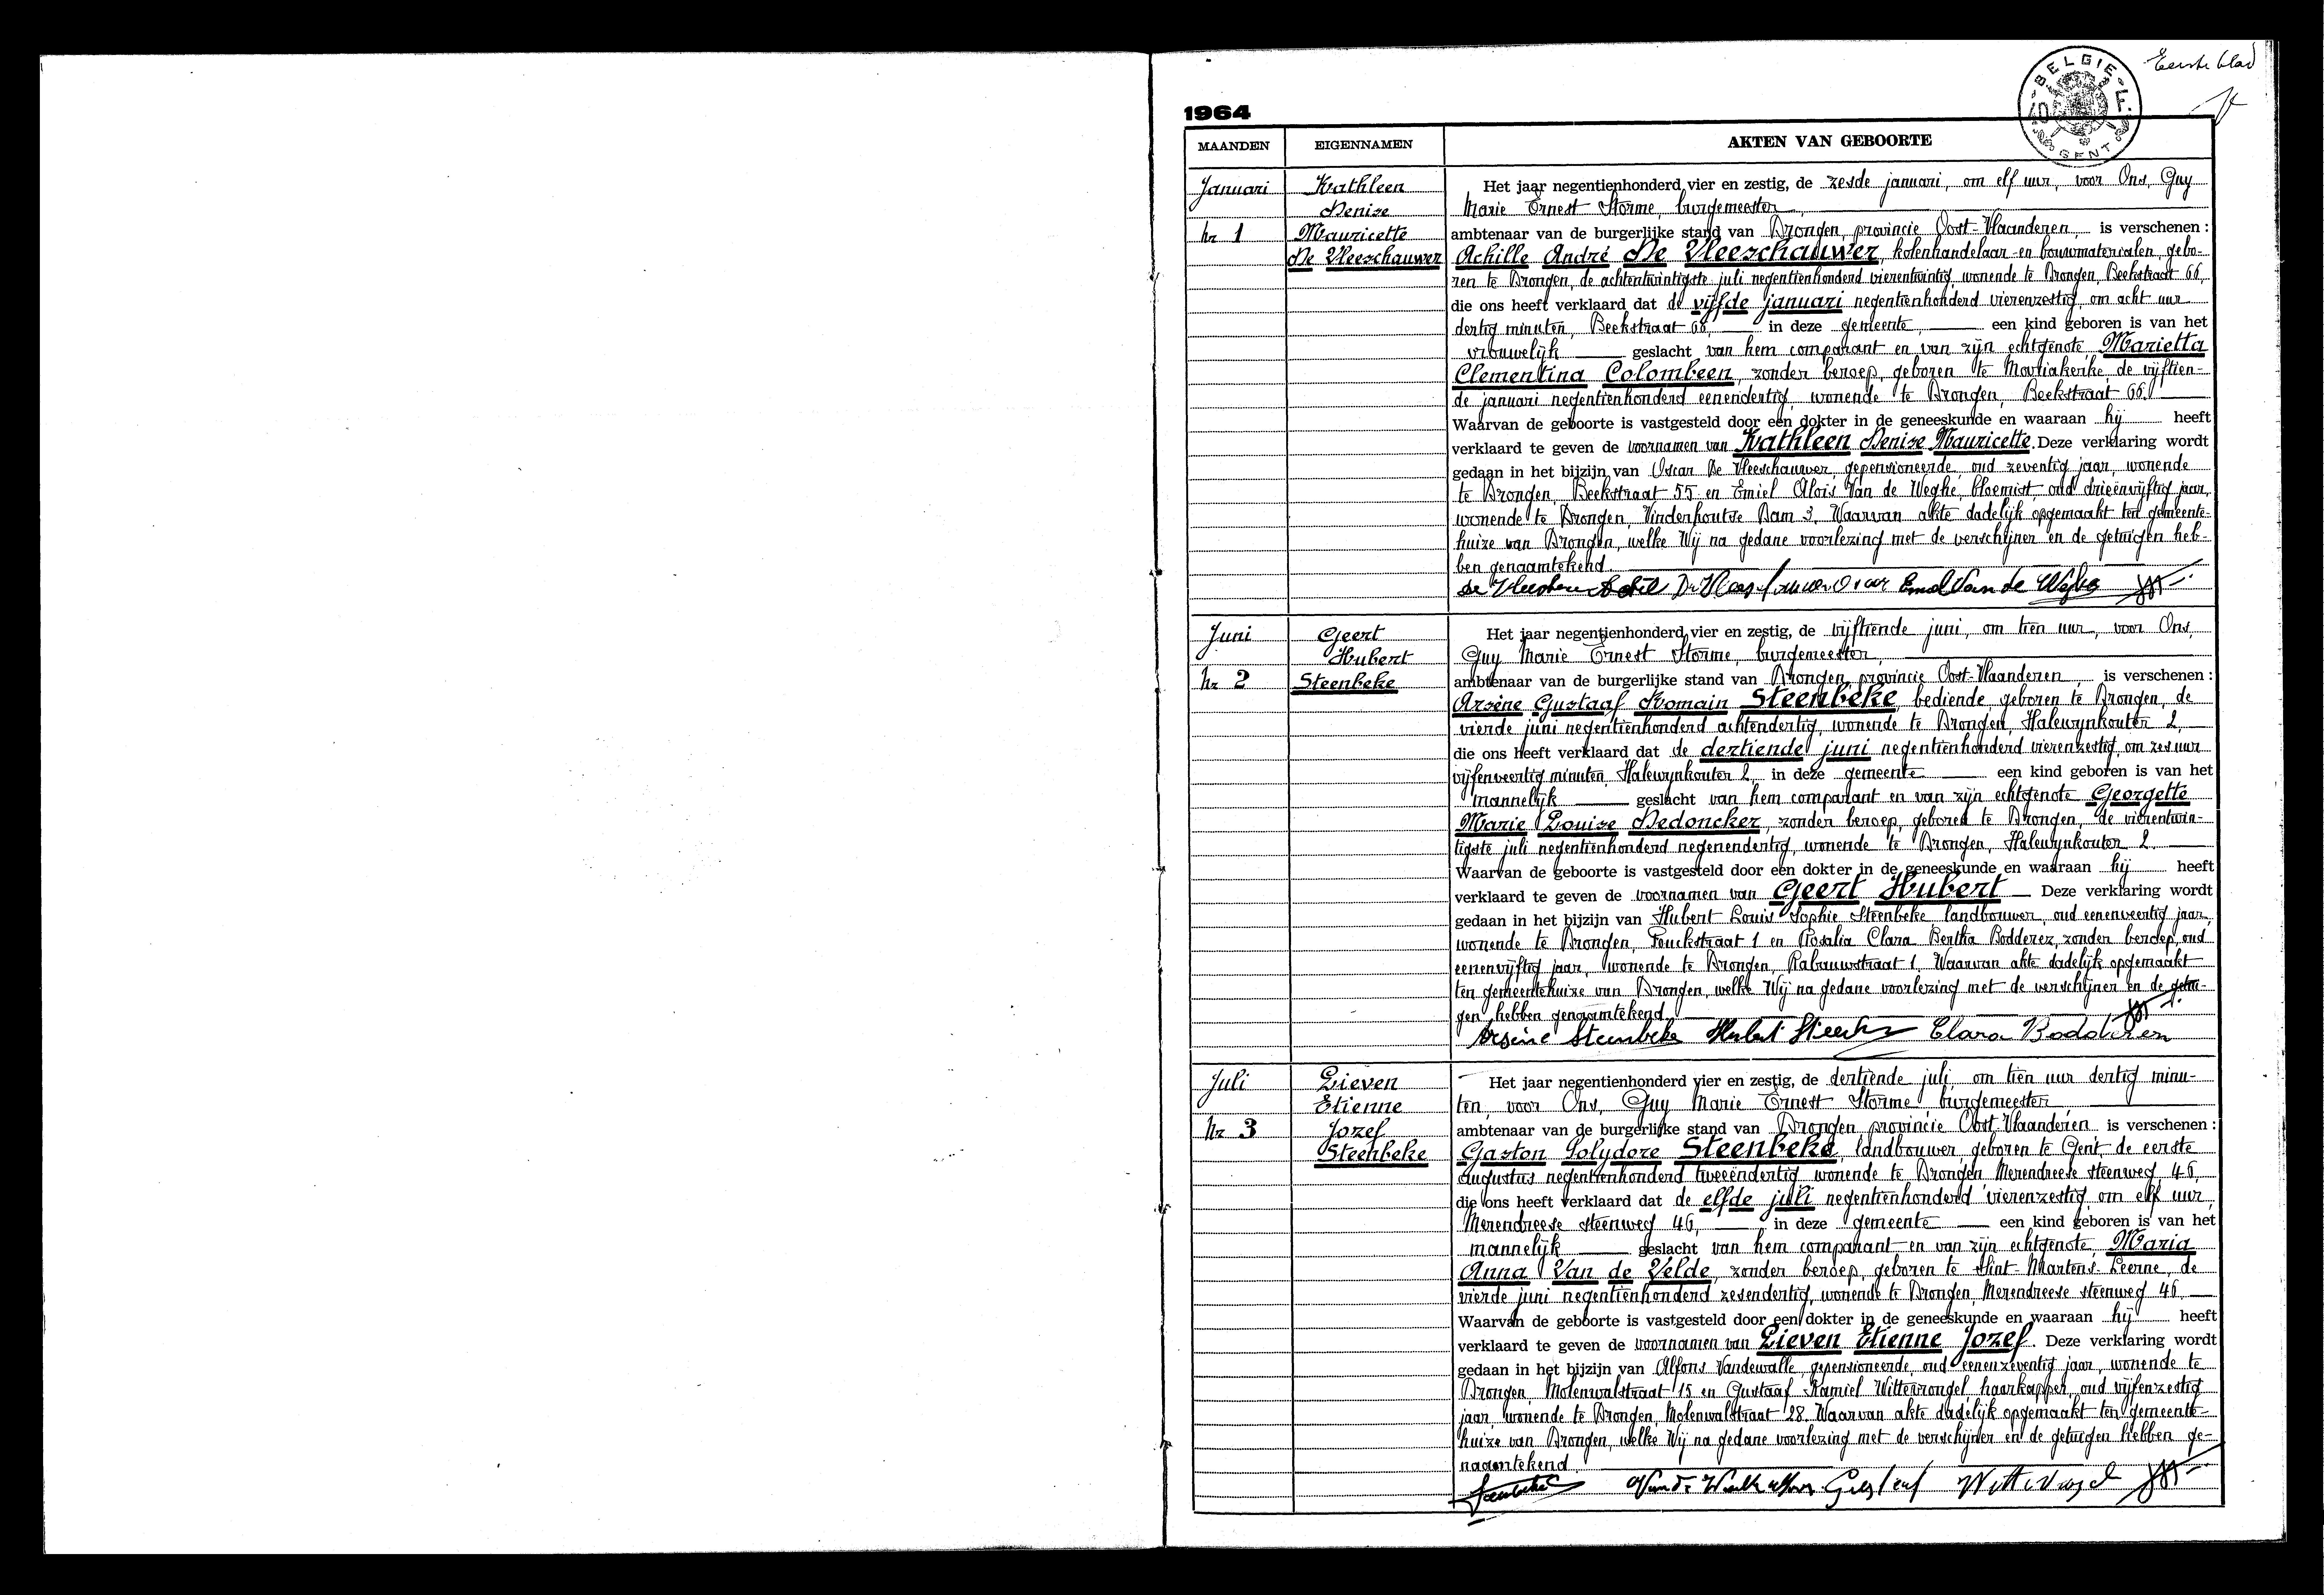 Eerste blad
BELGIE
40 F.
GENT
1964
MAANDEN EIGENNAMEN AKTEN VAN GEBOORTE
Januari
nr 1
Kathleen
Denise
Mauricette
De Vleeschauwer
Het jaar negentienhonderd vier en zestig, de zesde januari, om elf uur, voor Ons, Guy
Marie Ernest Storme, burgemeester
ambtenaar van de burgerlijke stand van Drongen, provincie Oost-Vlaanderen, is verschenen :
Achille André De Vleeschauwer, kolenhandelaar en bouwmaterialen, gebo-
ren te Drongen, de achtentwintigste juli negentienhonderd vierentwintig, wonende te Drongen, Beekstraat 66,
die ons heeft verklaard dat de vijfde januari negentienhonderd vierenzestig, om acht uur
dertig minuten, Beekstraat 66, in deze gemeente, een kind geboren is van het
vrouwelijk geslacht van hem comparant en van zijn echtgenote, Marietta
Clementina Colombeen, zonder beroep, geboren te Mariakerke, de vijftien-
de januari negentienhonderd eenendertig, wonende te Drongen, Beekstraat 66.
Waarvan de geboorte is vastgesteld door een dokter in de geneeskunde en waaraan hij heeft
verklaard te geven de voornamen van Kathleen Denise Mauricette. Deze verklaring wordt
gedaan in het bijzijn van Oscar De Vleeschauwer, gepensioneerde, oud zeventig jaar, wonende
te Drongen, Beekstraat 55 en Emiel Aloïs Van de Weghe, bloemist, oud drieënvijftig jaar,
wonende te Drongen, Vinderhoutse Dam 3. Waarvan akte dadelijk opgemaakt ten gemeente-
huize van Drongen, welke Wij na gedane voorlezing met de verschijner en de getuigen heb-
ben genaamtekend.
Juni
nr 2
Geert
Hubert
Steenbeke
Het jaar negentienhonderd vier en zestig, de vijftiende juni, om tien uur, voor Ons,
Guy Marie Ernest Storme, burgemeester,
ambtenaar van de burgerlijke stand van Drongen, provincie Oost-Vlaanderen, is verschenen :
Arsène Gustaaf Romain Steenbeke, bediende, geboren te Drongen, de
vierde juni negentienhonderd achtendertig, wonende te Drongen, Halewynkouter 2,
die ons heeft verklaard dat de dertiende juni negentienhonderd vierenzestig, om zes uur
vijfenveertig minuten, Halewynkouter 2, in deze gemeente een kind geboren is van het
mannelijk geslacht van hem comparant en van zijn echtgenote Georgette
Marie Louise Dedoncker, zonder beroep, geboren te Drongen, de vierentwin-
tigste juli negentienhonderd negenendertig, wonende te Drongen, Halewynkouter 2.
Waarvan de geboorte is vastgesteld door een dokter in de geneeskunde en waaraan hij heeft
verklaard te geven de voornamen van Geert Hubert Deze verklaring wordt
gedaan in het bijzijn van Hubert Louis Sophie Steenbeke landbouwer, oud eenenveertig jaar,
wonende te Drongen, Fouckstraat 1 en Rosalia Clara Bertha Bodderez, zonder beroep, oud
eenenvijftig jaar, wonende te Drongen, Rabauwstraat 1. Waarvan akte dadelijk opgemaakt
ten gemeentehuize van Drongen, welke Wij na gedane voorlezing met de verschijner en de getui-
gen hebben genaamtekend.
Arsène Steenbeke Clara
Juli
Nr 3
Lieven
Etienne
Jozef
Steenbeke
Het jaar negentienhonderd vier en zestig, de dertiende juli, om tien uur dertig minu-
ten, voor Ons, Guy Marie Ernest Storme burgemeester
ambtenaar van de burgerlijke stand van Drongen provincie Oost-Vlaanderen is verschenen :
Gaston Polydore Steenbeke, landbouwer, geboren te Gent, de eerste
augustus negentienhonderd tweeëndertig, wonende te Drongen, Merendreese steenweg, 46,
die ons heeft verklaard dat de elfde juli negentienhonderd vierenzestig, om elf uur,
Merendreese steenweg 46, in deze gemeente een kind geboren is van het
mannelijk geslacht van hem comparant en van zijn echtgenote, Maria
Anna Van de Velde, zonder beroep, geboren te Sint-Martens-Leerne, de
vierde juni negentienhonderd zesendertig, wonende te Drongen, Merendreese steenweg 46.
Waarvan de geboorte is vastgesteld door een dokter in de geneeskunde en waaraan hij heeft
verklaard te geven de voornamen van Lieven Etienne Jozef. Deze verklaring wordt
gedaan in het bijzijn van Alfons Vandewalle, gepensioneerde, oud eenenzeventig jaar, wonende te
Drongen, Molenwalstraat 15 en Gustaaf Kamiel Wittevrongel, haarkapper, oud vijfenzestig
jaar, wonende te Drongen, Molenwalstraat 28. Waarvan akte dadelijk opgemaakt ten gemeente-
huize van Drongen, welke Wij na gedane voorlezing met de verschijner en de getuigen hebben ge-
naamtekend.